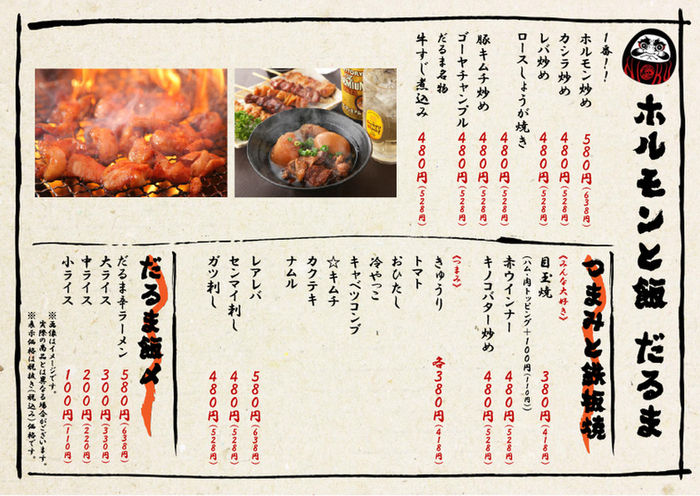 ホルモンと飯 だるま
1番!!
ホルモン炒め 580円(638円)
カシラ炒め 480円(528円)
レバ炒め 480円(528円)
ロースしょうが焼き 480円(528円)
豚キムチ炒め 480円(528円)
ゴーヤチャンプル 480円(528円)
だるま名物
牛すじ煮込み 480円(528円)
つまみと鉄板焼
《みんな大好き》
目玉焼 380円(418円)
(ハム・肉トッピング+100円(110円)
赤ウインナー 480円(528円)
キノコバター炒め 480円(528円)
《つまみ》
きゅうり 各380円(418円)
トマト
おひたし
冷やっこ
キャベツコンブ
☆キムチ
カクテキ
ナムル
レアレバ 580円(638円)
センマイ刺し 480円(528円)
ガツ刺し 480円(528円)
だるま飯〆
だるま辛ラーメン 580円(638円)
大ライス 300円(330円)
中ライス 200円(220円)
小ライス 100円(110円)
※画像はイメージです。
実際の商品とは異なる場合がございます。
※表示価格は税抜き(税込み)価格です。